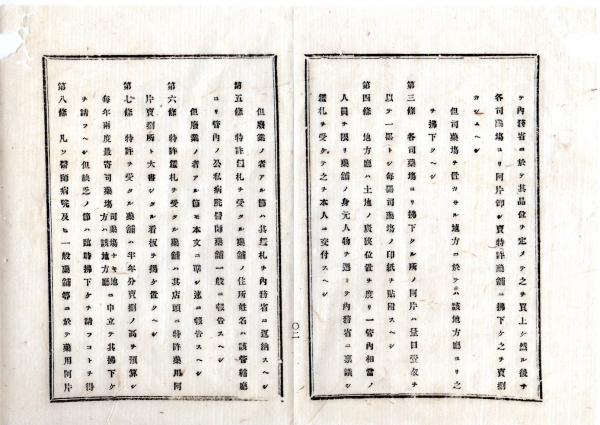 テ内務省ニ於テ其品位ヲ定メテ之ヲ買上然ル後ヲ
各司薬場ヨリ阿片卸シ賣特許薬舗ニ拂下ケ之ヲ賣捌
カシムヘシ
但司薬場ヲ置カサル地方ニ於テハ該地方廳ヨリ之
ヲ拂下クヘシ
第三條 各司薬場ヨリ拂下クル所ノ阿片ハ量目壹
以テ一器トシ毎器司薬場ノ印紙ヲ貼附スヘシ
第四條 地方廳ハ土地ノ廣狹位置ヲ度リ一管内相當ノ
人員ヲ限リ薬舗ノ身元人物ヲ選ミテ内務省ニ稟議シ
鑑札ヲ受ケテ之ヲ本人ニ交付スヘシ
二〇
但廢業ノ者アル節ハ其鑑札ヲ内務省ニ返納スヘシ
第五條 特許鑑札ヲ受タル薬舗ノ住所姓名ハ該管轄廳
ヨリ管内ノ公私病院醫師薬舗一般ニ報告スヘシ
但廢業ノ者アル節モ本文ニ準シ速ニ報告スヘシ
第六條 特許鑑札ヲ受タル薬舗ハ其店頭ニ特許薬用阿
片賣捌所ト大書シタル看板ヲ揚ケ置クヘシ
第七條 特許ヲ受タル薬舗ハ半年分賣捌ノ高ヲ預算シ
毎年兩度最寄司薬場司薬場ナキ地方ハ該地方廳ニ申立テ其拂下ケ
ヲ請フヘシ但缺乏ノ節ハ臨時拂下ケヲ請フコトヲ得
第八條 凡ソ醫師病院及ヒ一般薬舗等ニ於テ薬用阿片